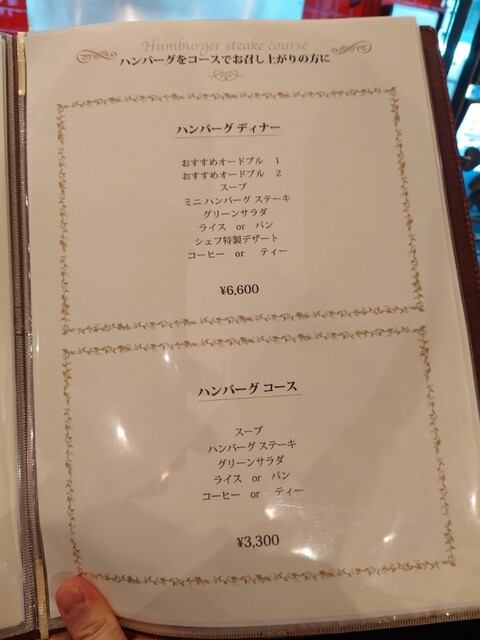 Humburger steake course
ハンバーグをコースでお召し上がりの方に
ハンバーグ ディナー
おすすめオードブル　1
おすすめオードブル　2
スープ
ミニ ハンバーグ ステーキ
グリーンサラダ
ライス　or　パン
シェフ特製デザート
コーヒー　or　ティー
¥6,600
ハンバーグ コース
スープ
ハンバーグ ステーキ
グリーンサラダ
ライス　or　パン
コーヒー　or　ティー
¥3,300